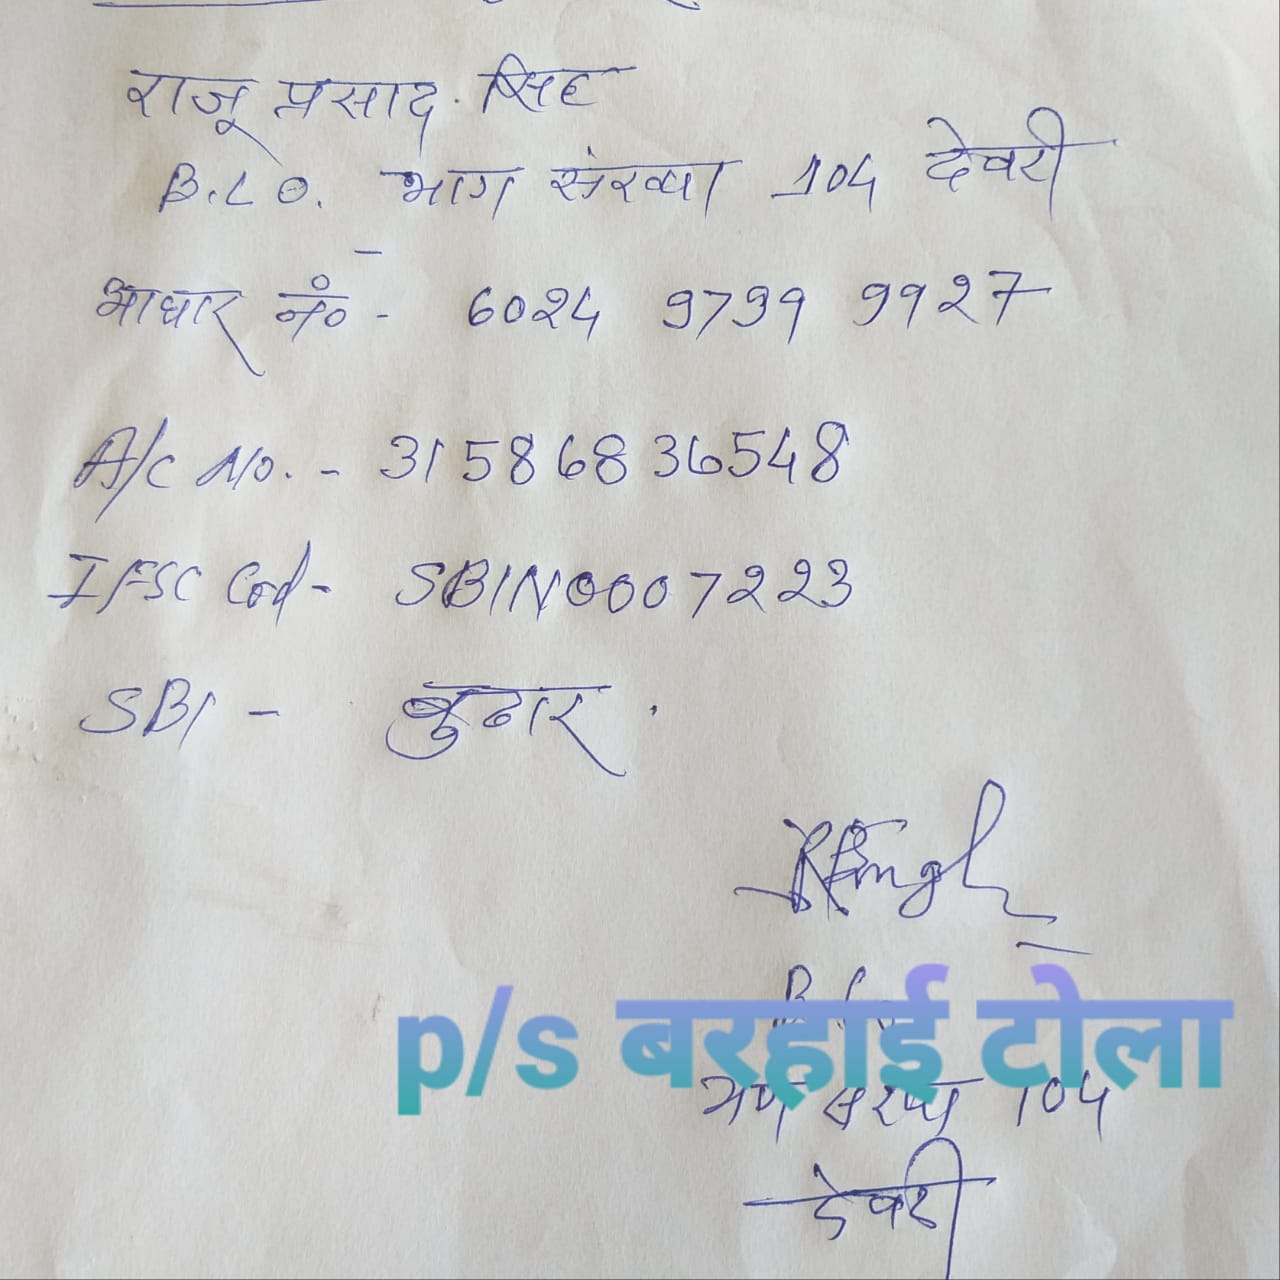 राजू प्रसाद सिंह
B.L.O. भाग संख्या 104 देवरी
आधार नं० - 6024 9799 9927
A/c No. - 31586836548
IFSC Cod - SBIN0007223
SBI - बुढार
RSingh
p/s बरहाई टोला
भाग संख्या 104
देवरी